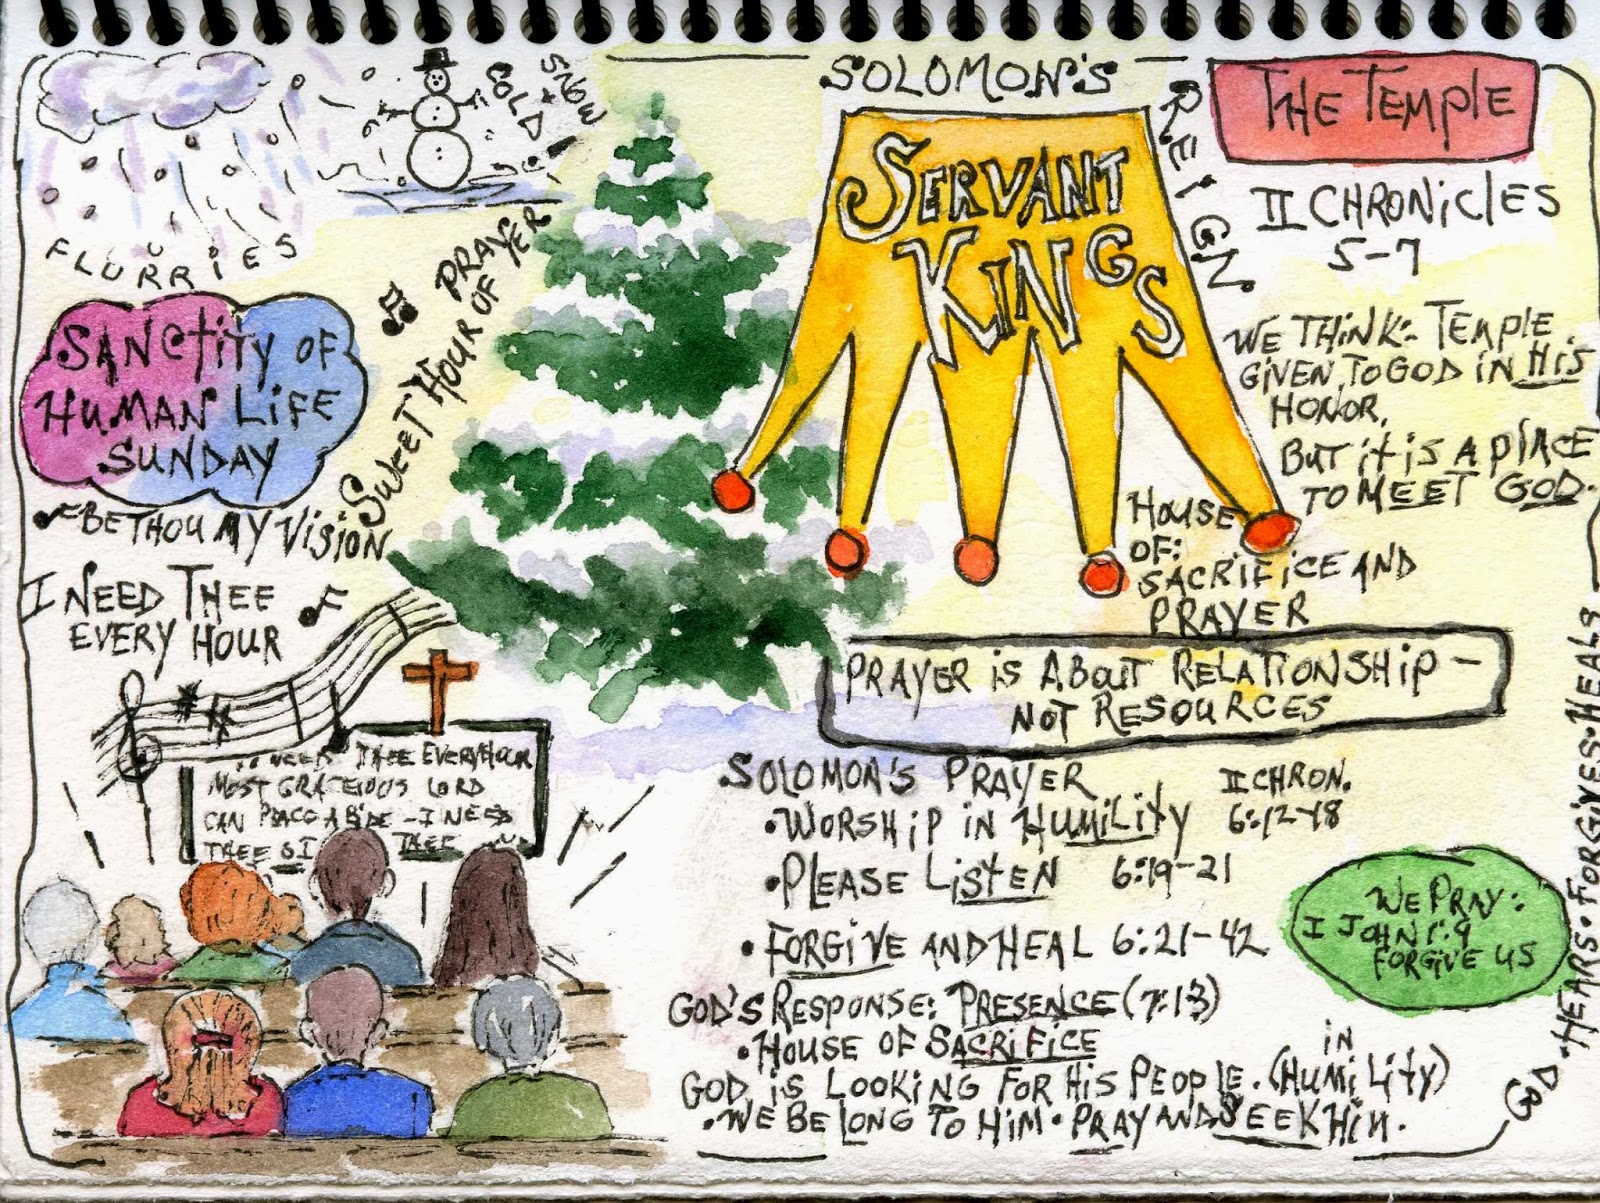 FLURRIES
SNOW
+ COLD
SANCTITY OF
HUMAN LIFE
SUNDAY
BE THOU MY VISION
SWEET HOUR OF PRAYER
I NEED THEE
EVERY HOUR
NEED THEE EVERY HOUR
MOST GRACEIOUS LORD
CAN
ABIDE - I NEED
THEE O I THEE
SOLOMON'S
REIGN
SERVANT
KINGS
THE TEMPLE
II CHRONICLES
5-7
WE THINK: TEMPLE
GIVEN TO GOD IN HIS
HONOR,
BUT it is A PLACE
TO MEET GOD.
HOUSE
OF:
SACRIFICE AND
PRAYER
PRAYER is ABOUT RELATIONSHIP -
NOT RESOURCES
SOLOMON'S PRAYER II CHRON.
• WORSHIP IN HUMILITY 6:12-18
• PLEASE LISTEN 6:19-21
• FORGIVE AND HEAL 6:21-42
WE PRAY:
I JOHN 1:9
FORGIVE US
GOD'S RESPONSE: PRESENCE (7:1-3)
• HOUSE OF SACRIFICE
GOD is LOOKING FOR HIS PEOPLE. (IN HUMILITY)
• WE BELONG TO HIM • PRAY AND SEEK HIM.
GOD • HEARS • FORGIVES • HEALS